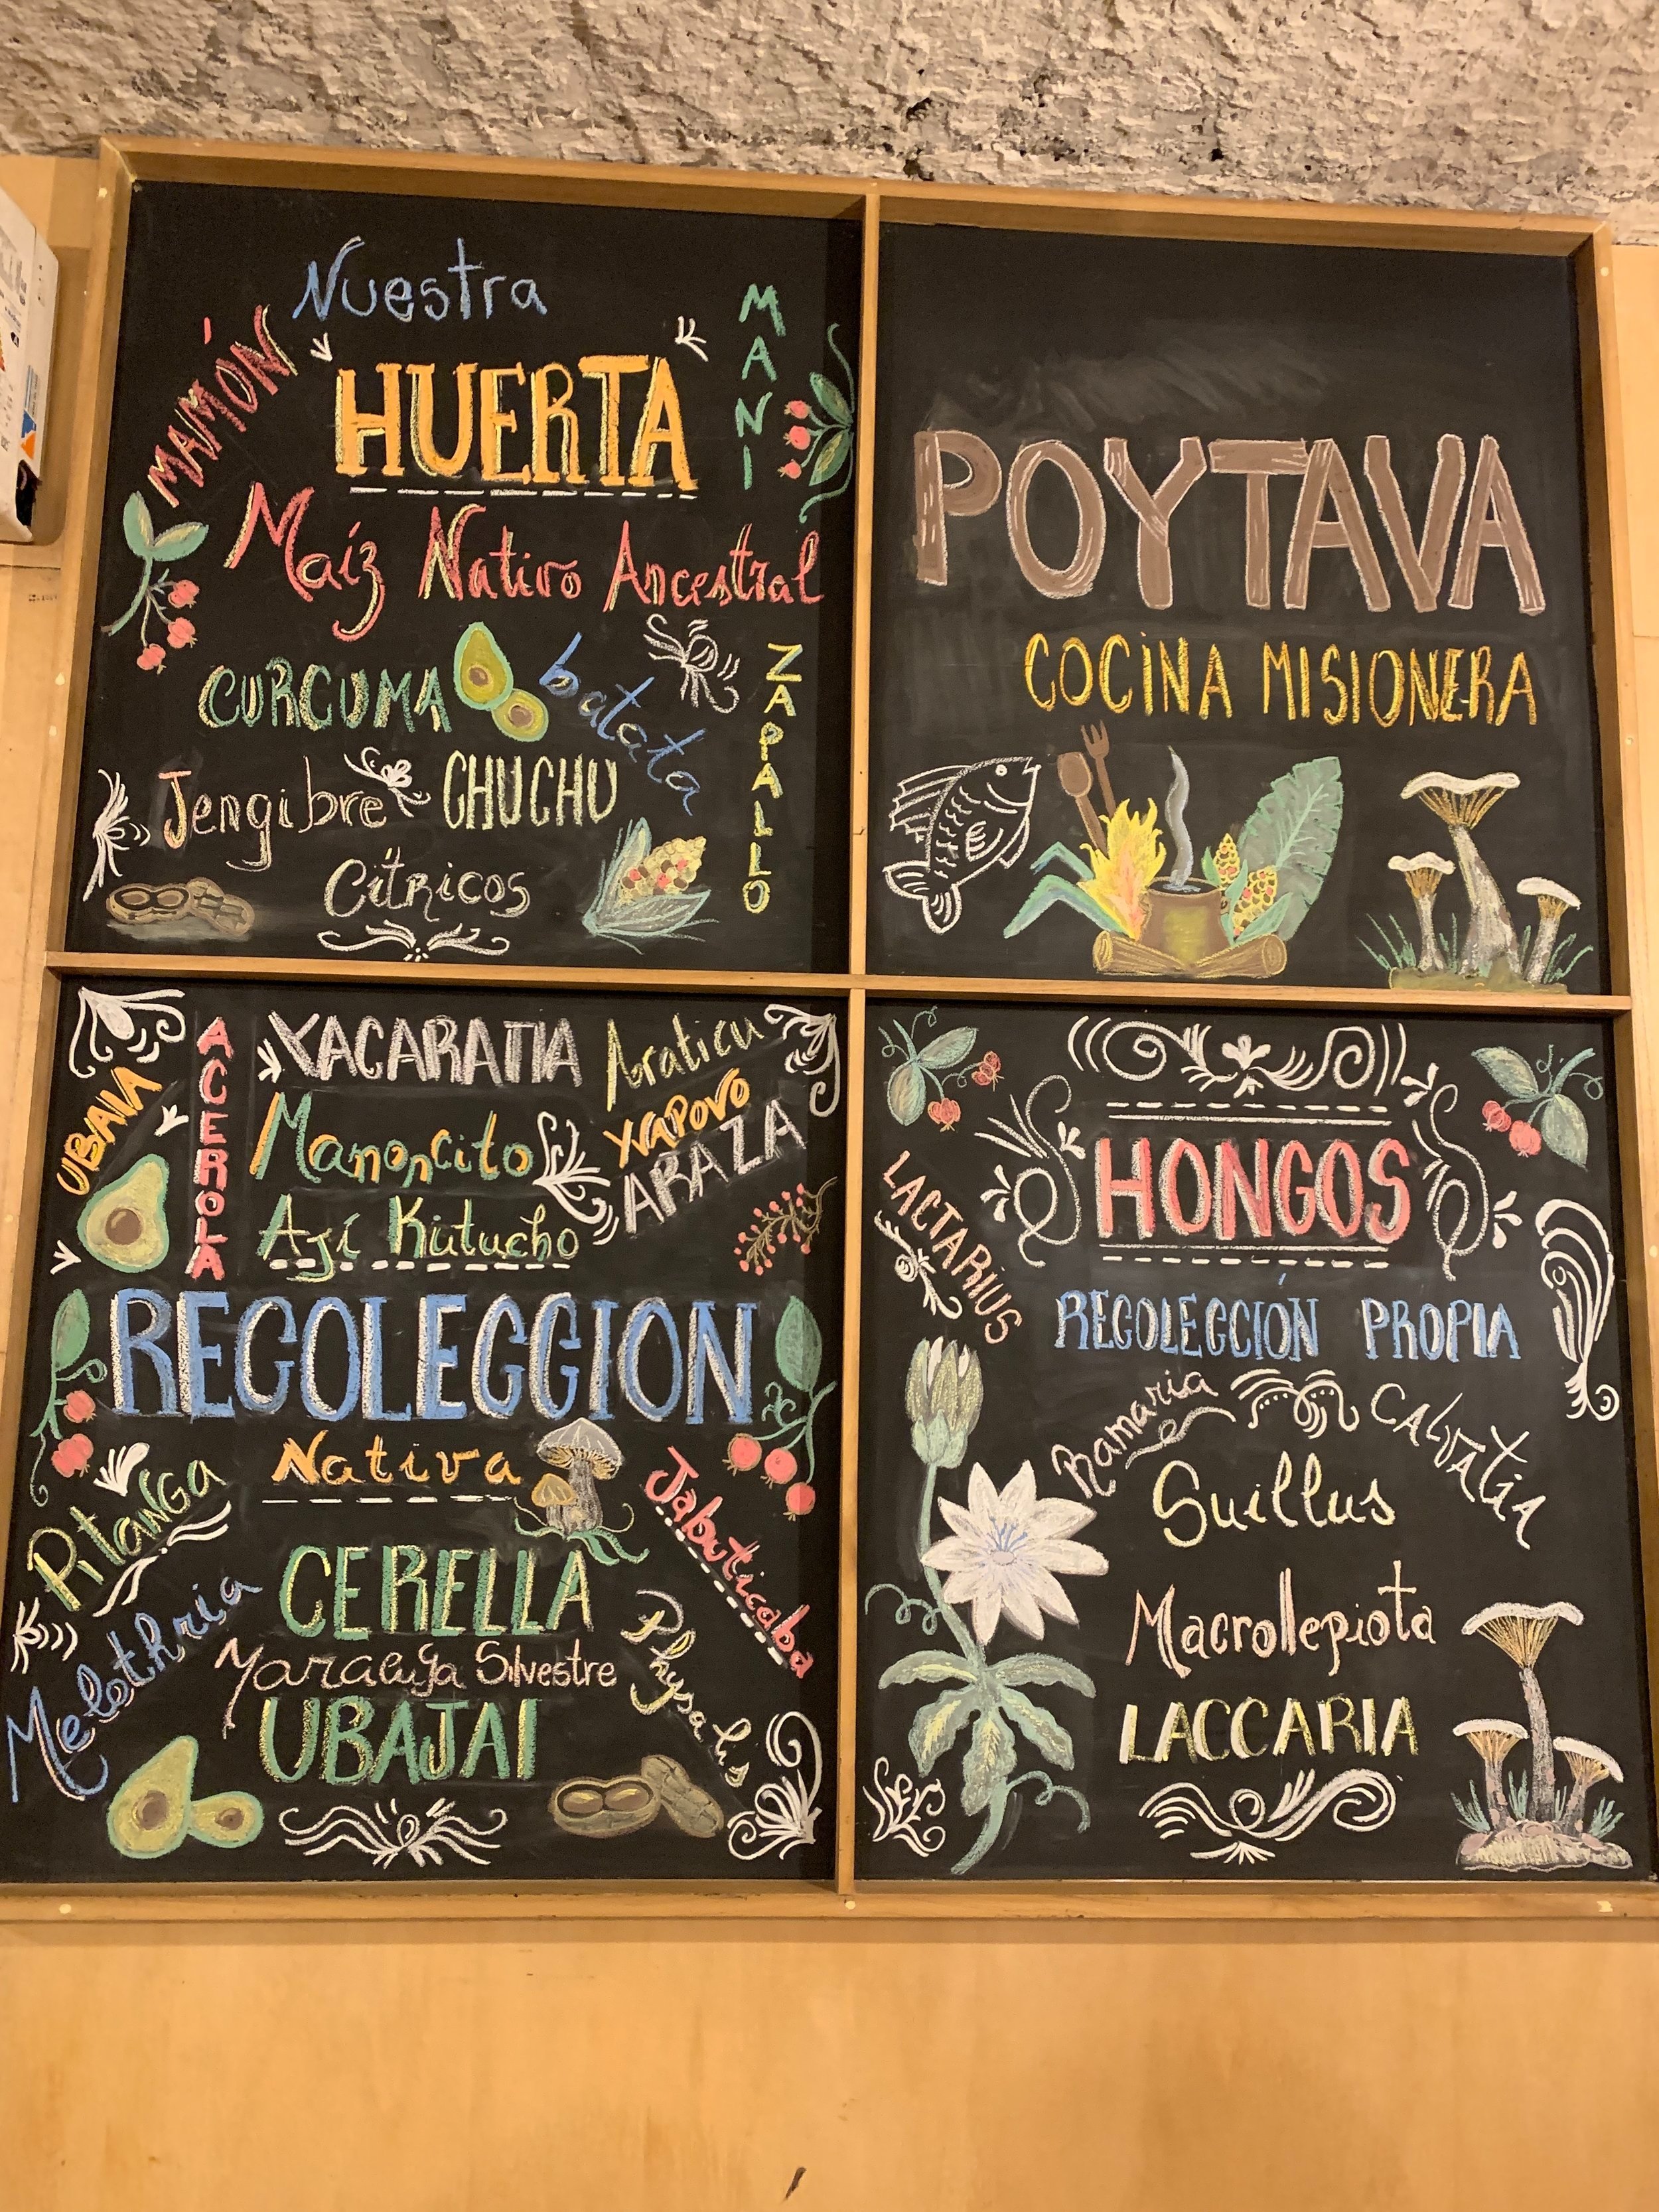 Nuestra
HUERTA
MAMÓN
MANI
Maíz Nativo Ancestral
CURCUMA
batata
ZAPALLO
Jengibre
CHUCHU
Cítricos
POYTAVA
COCINA MISIONERA
UBAIA
ACEROLA
YACARATIA
Araticu
Manoncito
YVAPOVO
ARAZA
Ají Kutucho
RECOLECCION
Nativa
Pitanga
Jabuticaba
CERELLA
Melothria
Maracuya Silvestre
Physalis
UBAJAI
HONGOS
LACTARIUS
RECOLECCIÓN PROPIA
Ramaria
CALVATIA
Suillus
Macrollepiota
LACCARIA